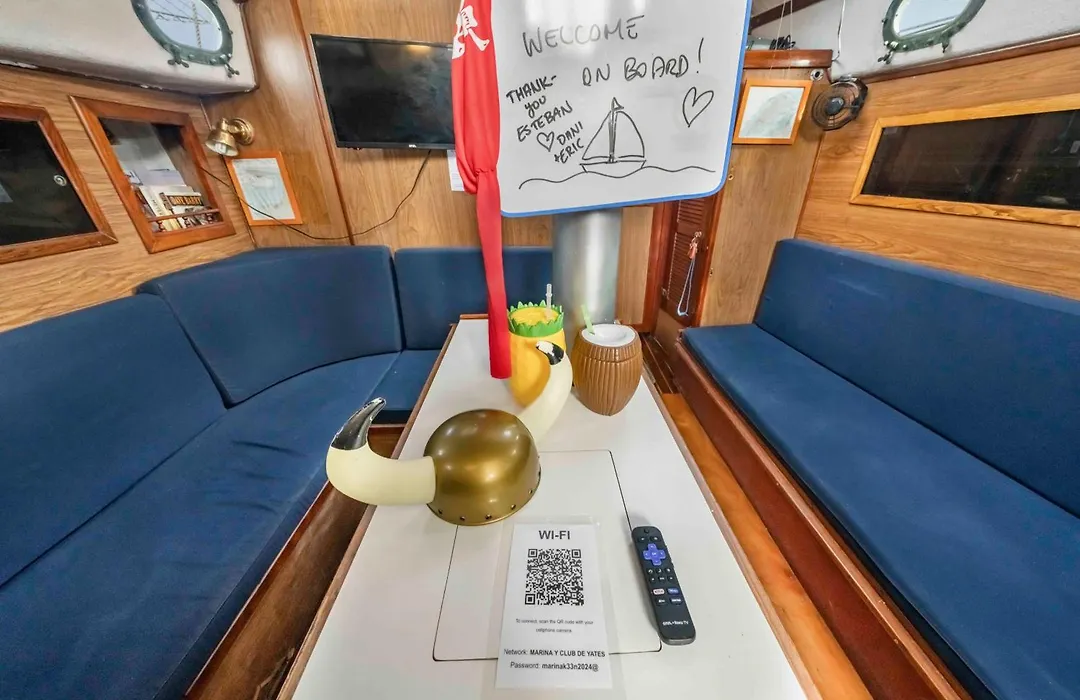 WELCOME
ON BOARD!
THANK-
YOU
ESTEBAN
DANI
+ERIC
DAVE BARRY
WI-FI
To connect, scan the QR code with your
cellphone camera
Network: MARINA Y CLUB DE YATES
Password: marinak33n2024@